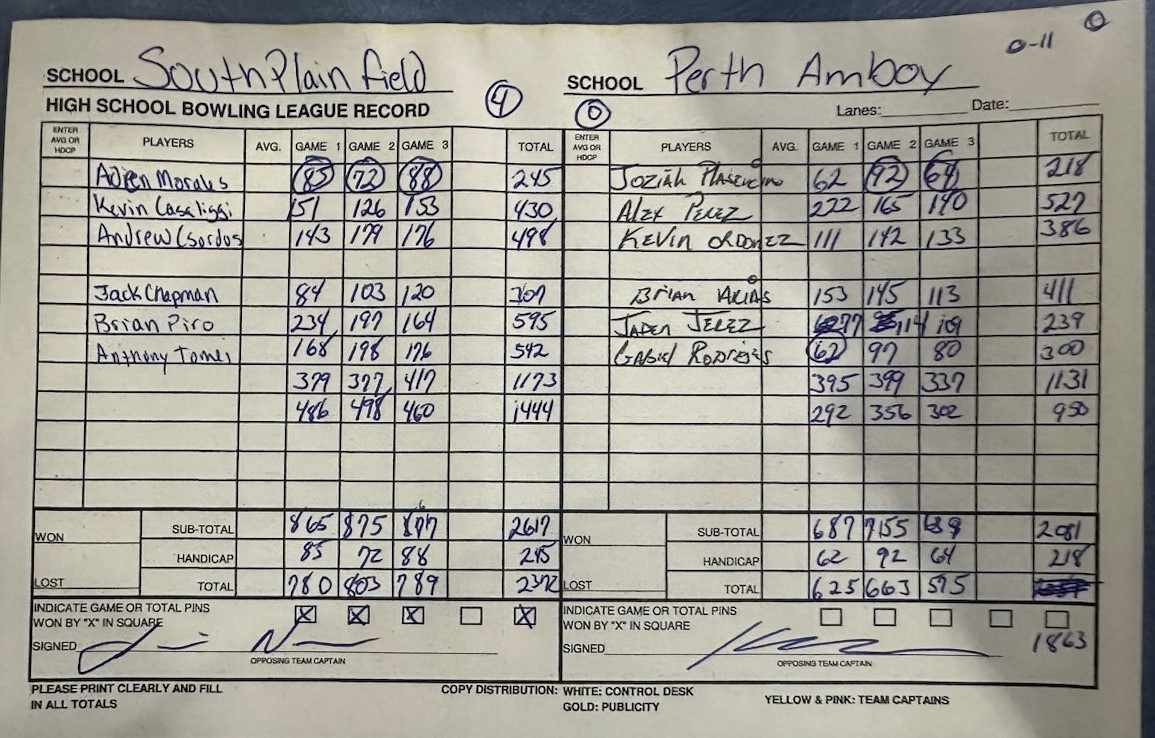 0-11 0
SCHOOL South Plainfield SCHOOL Perth Amboy
HIGH SCHOOL BOWLING LEAGUE RECORD 4 0 Lanes: Date:
ENTER AVG OR HDCP PLAYERS AVG. GAME 1 GAME 2 GAME 3 TOTAL ENTER AVG OR HDCP PLAYERS AVG. GAME 1 GAME 2 GAME 3 TOTAL
Morales 85 72 88 245 Joziah 62 92 64 218
Kevin 151 126 153 430 Alex Perez 222 165 140 527
Andrew Csordos 143 179 176 498 Kevin Ordonez 111 142 133 386
Jack Chapman 84 103 120 307 Brian Arias 153 145 113 411
Brian Piro 234 197 164 595 Jaden Jerez 77 114 239
Anthony 168 198 176 542 62 97 80 300
379 377 417 1173 395 399 337 1131
486 498 460 1444 292 356 302 950
WON SUB-TOTAL 865 875 877 2617 WON SUB-TOTAL 687 755 2081
HANDICAP 85 72 88 245 HANDICAP 62 92 64 218
LOST TOTAL 780 803 789 2372 LOST TOTAL 625 663 575
INDICATE GAME OR TOTAL PINS X X X X INDICATE GAME OR TOTAL PINS
WON BY "X" IN SQUARE WON BY "X" IN SQUARE
SIGNED SIGNED 1863
OPPOSING TEAM CAPTAIN OPPOSING TEAM CAPTAIN
PLEASE PRINT CLEARLY AND FILL COPY DISTRIBUTION: WHITE: CONTROL DESK YELLOW & PINK: TEAM CAPTAINS
IN ALL TOTALS GOLD: PUBLICITY